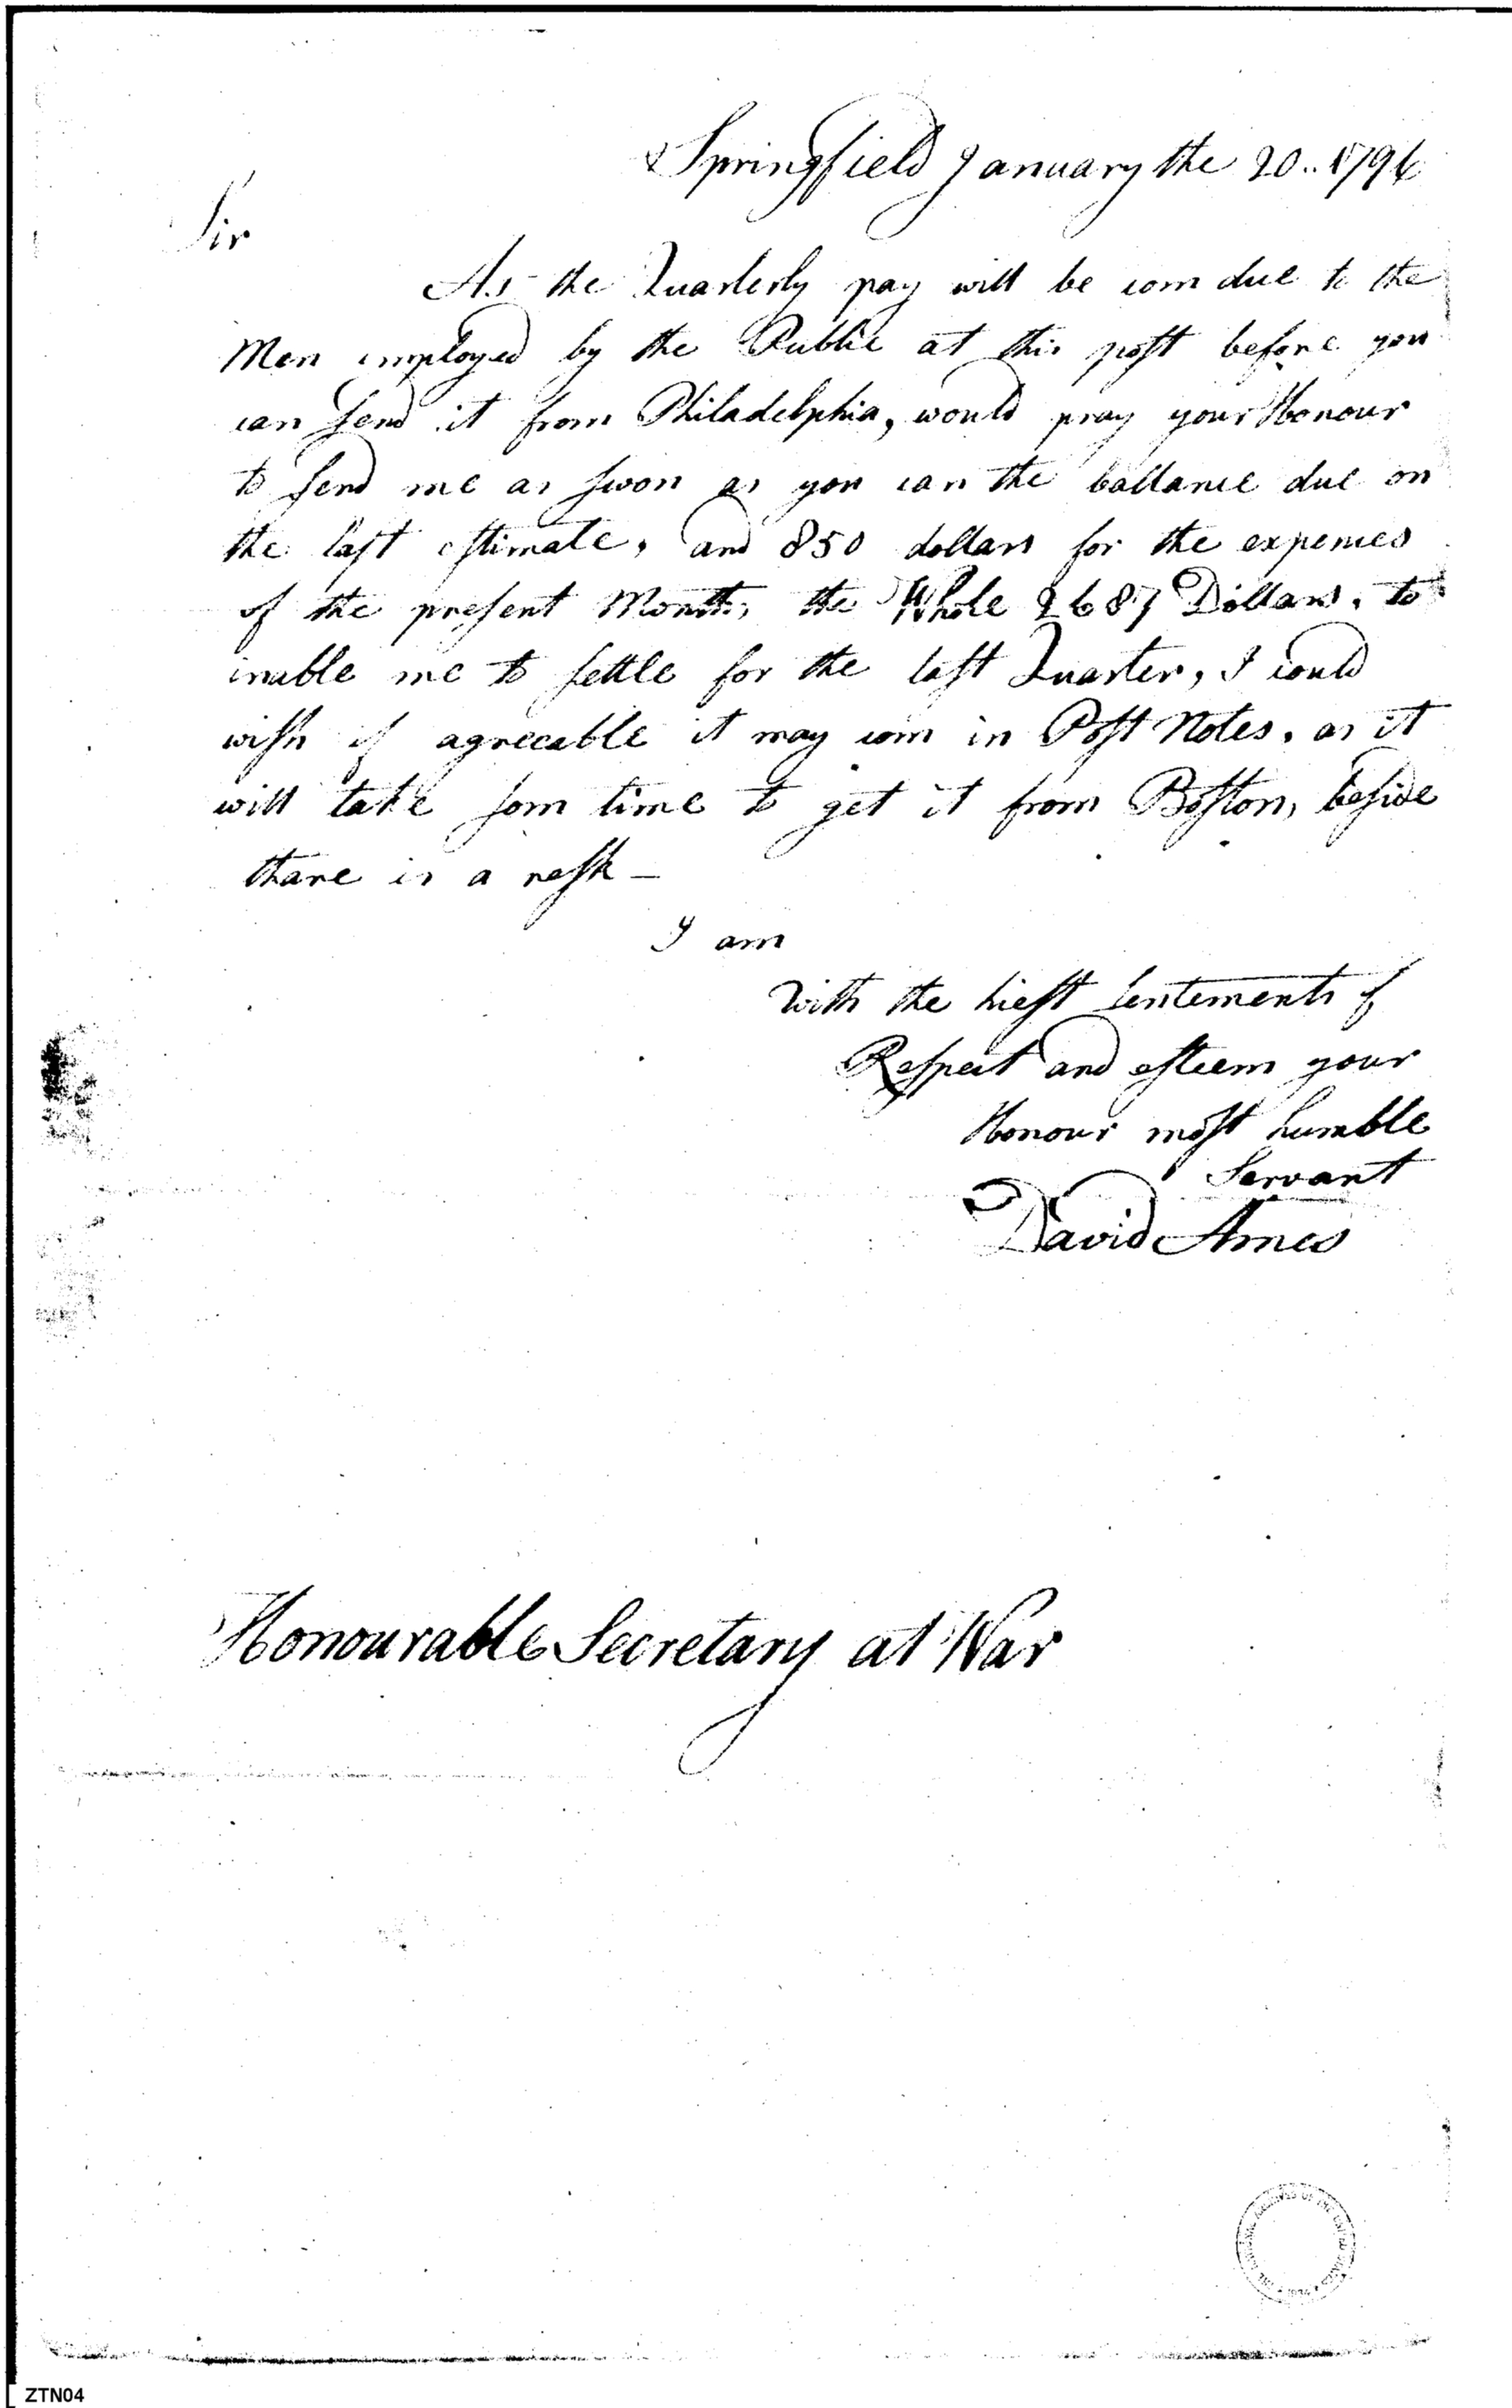 Springfield January the 20.. 1796
Sir
As the Quarterly pay will be com due to the
Men imployed by the Publie at this post before you
can send it from Philadelphia, would pray your Honour
to send me as swon as you can the ballance due on
the last estimate, and 850 dollars for the expences
of the present Month, the Whole 2687 Dollars, to
inable me to settle for the last Quarter, I could
wish if agreeable it may com in Post Notes, as it
will take som time to get it from Boston, beside
thare is a resk —
I am
With the hiest sentements of
Respect and esteem your
Honours most humble
Servant
David Ames
Honourable Secretary at War
ZTN04